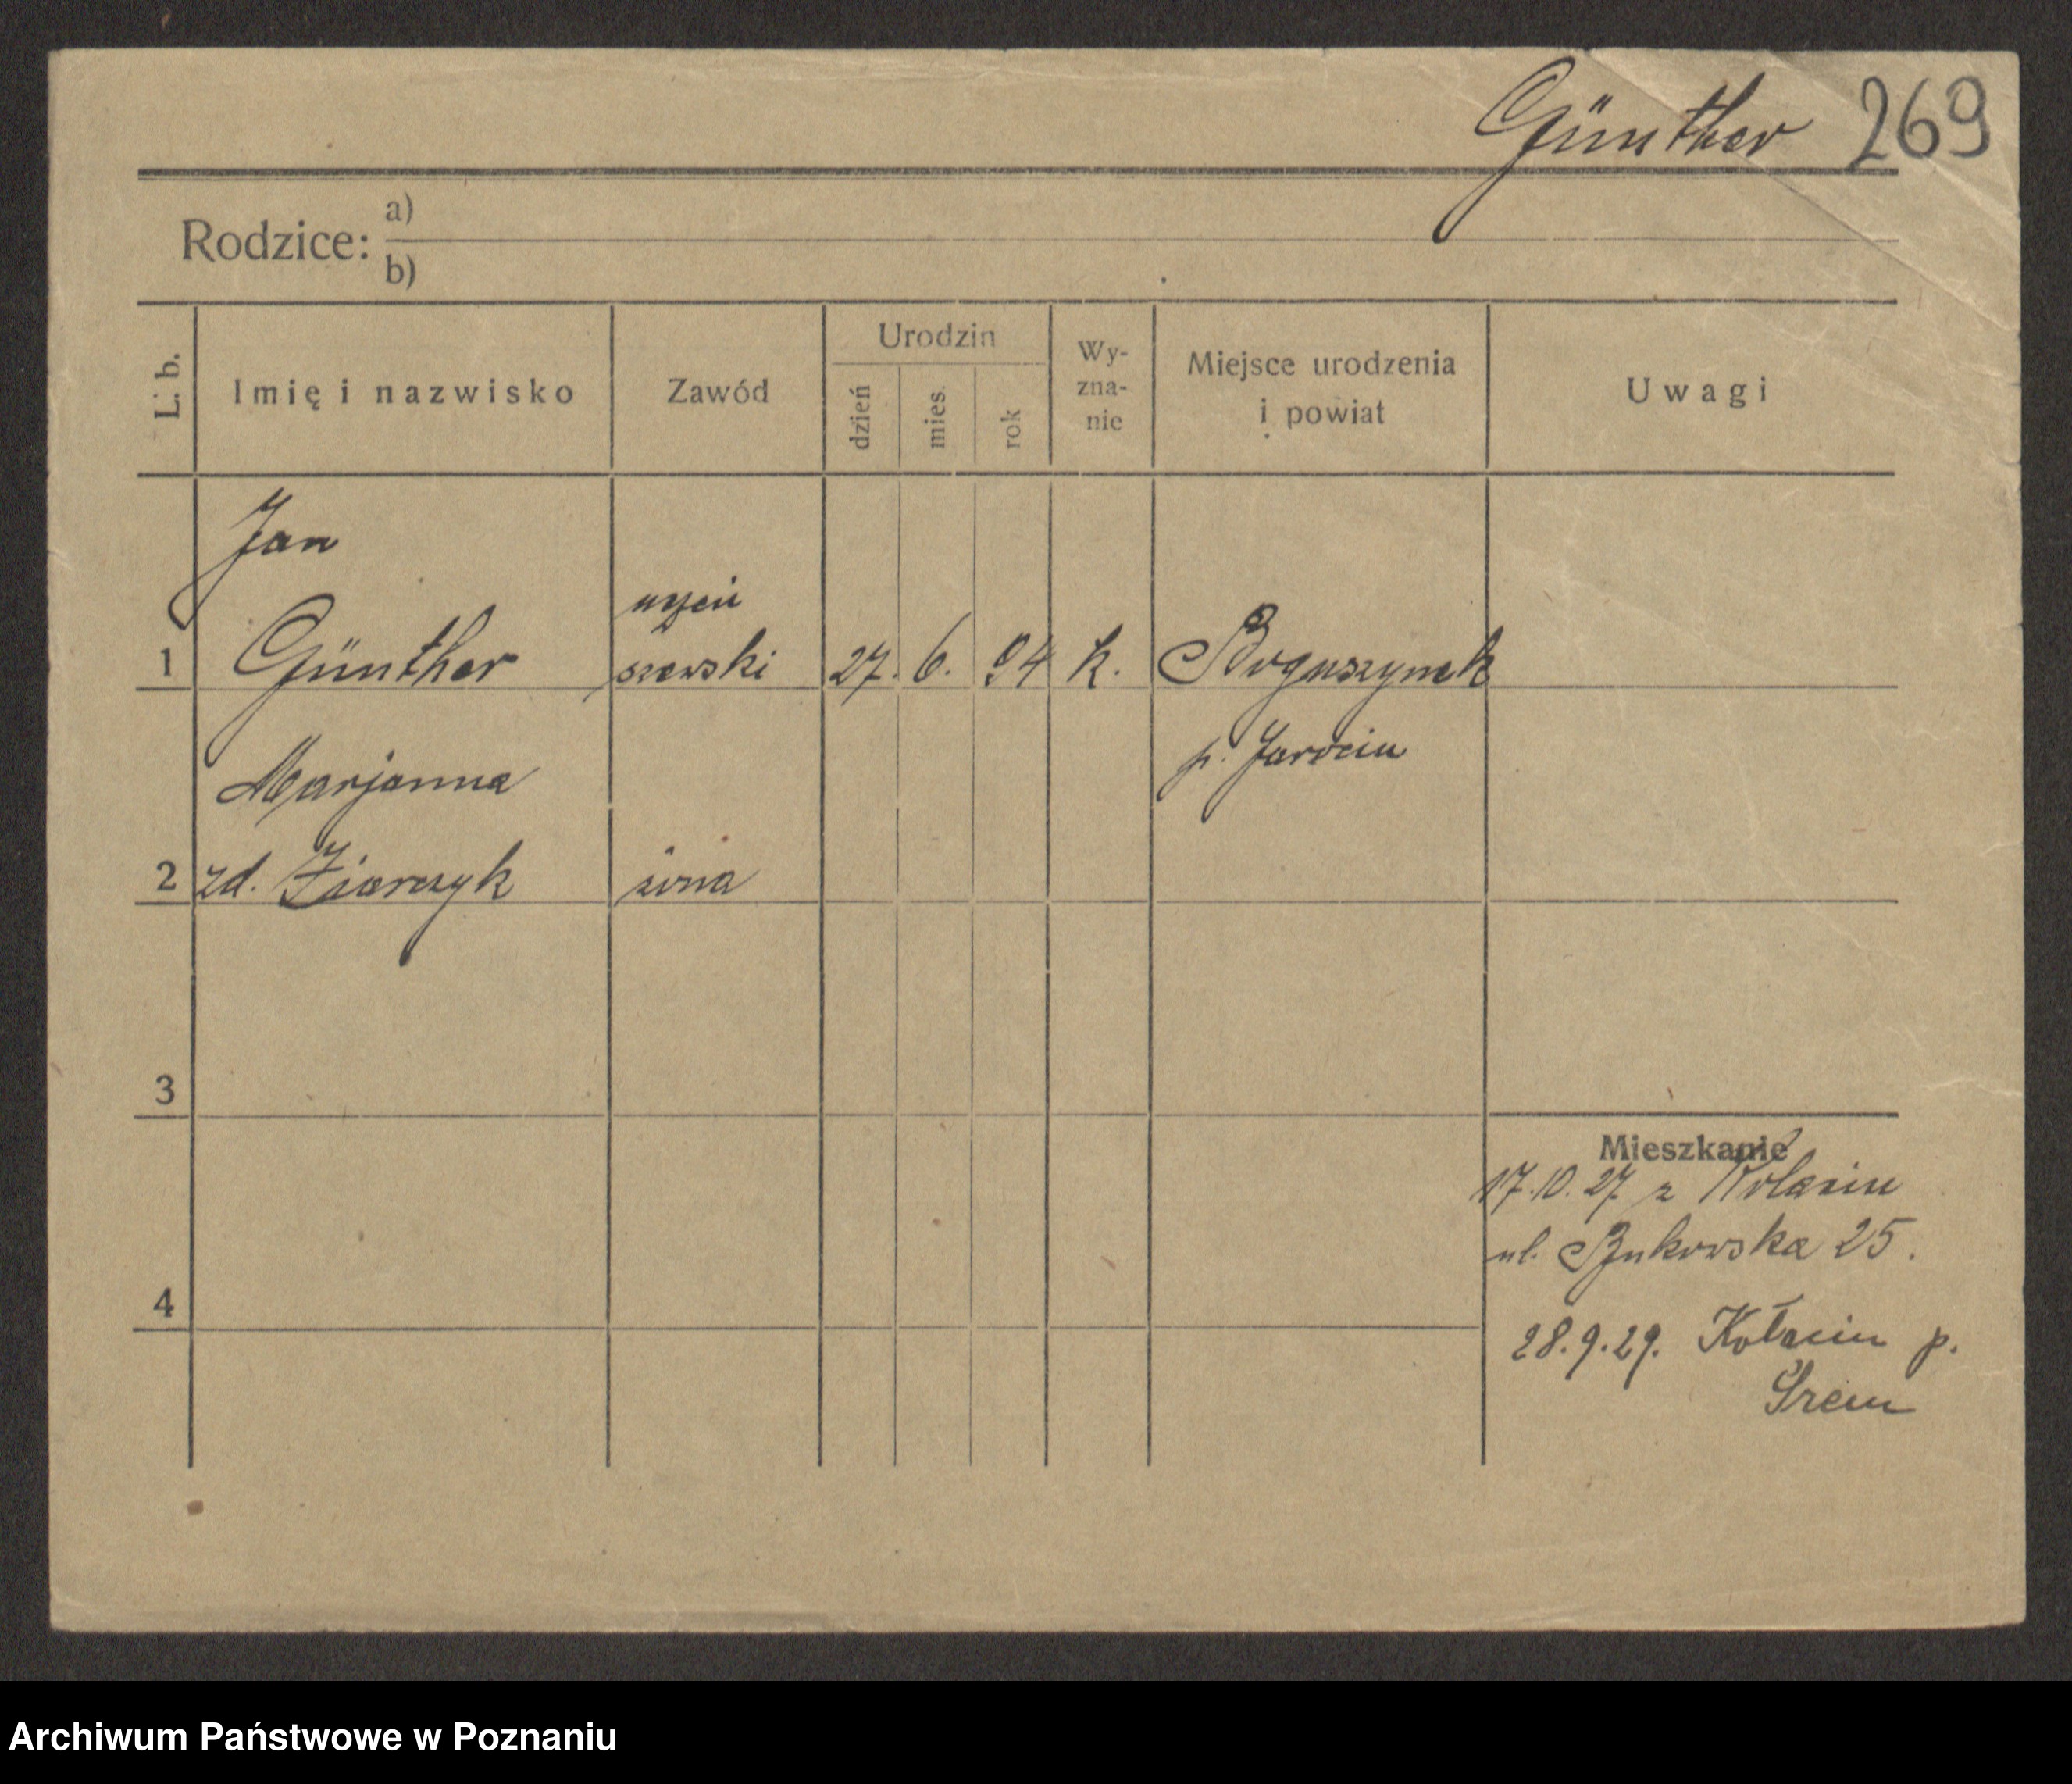 Günther 269
Rodzice:
a)
b)
L. b.
Imię i nazwisko
Zawód
Urodzin
dzień
mies.
rok
Wy-
zna-
nie
Miejsce urodzenia
i powiat
Uwagi
Jan
1 Günther
szewski 27. 6. 94 k. Boguszynek
p. Jarocin
Marjanna
2 zd. Ziarczyk żona
3
4
Mieszkanie
17.10.27 z Kołacin
ul. Bukowska 25.
28.9.29. Kołacin p.
Śrem
Archiwum Państwowe w Poznaniu